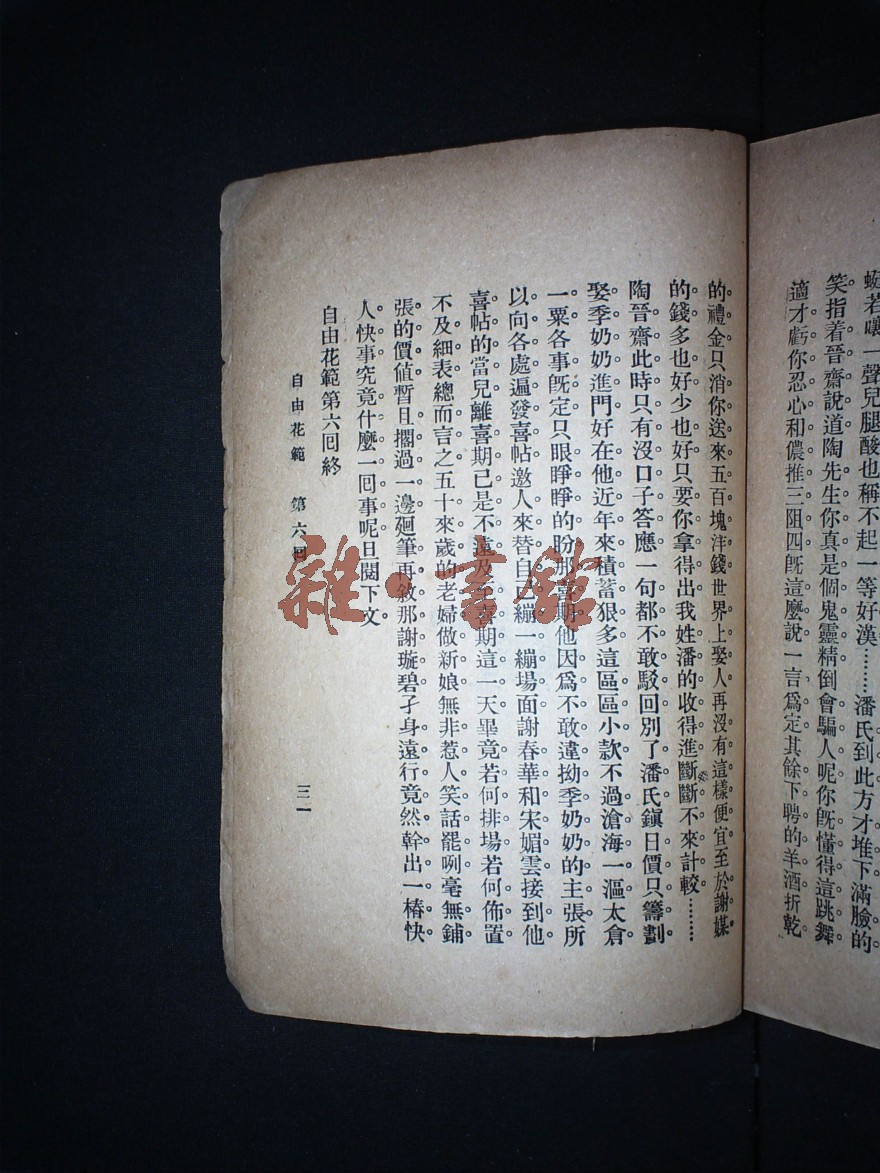 蜓若嚷一聲兒腿酸也稱不起一等好漢………潘氏到此方才堆下滿臉的
笑指着晉齋說道陶先生你真是個鬼靈精倒會騙人呢你旣懂得這跳舞
適才虧你忍心和儂推三阻四旣這麼說一言爲定其餘下聘的羊酒折乾
的禮金只消你送來五百塊洋錢世界上娶人再沒有這樣便宜至於謝媒
的錢多也好少也好只要你拿得出我姓潘的收得進斷斷不來計較………
陶晉齋此時只有沒口子答應一句都不敢駁回別了潘氏鎭日價只籌劃
娶季奶奶進門好在他近年來積蓄狠多這區區小款不過滄海一漚太倉
一粟各事旣定只眼睜睜的盼那喜期他因爲不敢違拗季奶奶的主張所
以向各處遍發喜帖邀人來替自己繃一繃場面謝春華和宋媚雲接到他
喜帖的當兒離喜期已是不遠及至喜期這一天畢竟若何排場若何佈置
不及細表總而言之五十來歲的老婦做新娘無非惹人笑話罷咧毫無鋪
張的價値暫且擱過一邊廻筆再敘那謝璇碧孑身遠行竟然幹出一樁快
人快事究竟什麼一回事呢且閱下文
自由花範第六回終
自由花範 第六回 三一
雜·書館